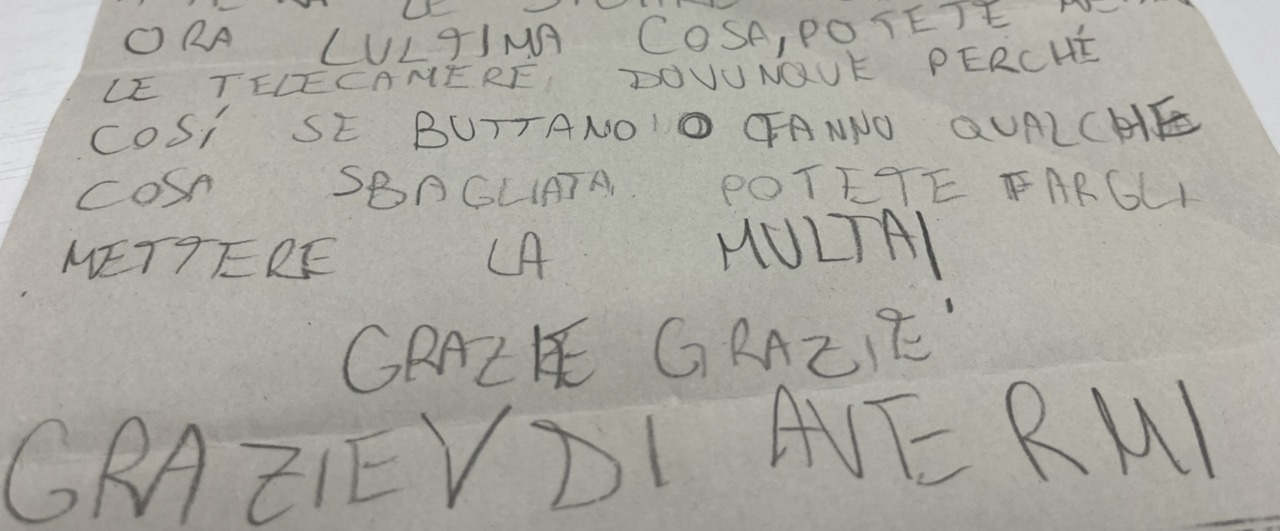 LE
ORA LULTIMA COSA, POTETE
LE TELECAMERE DOVUNQUE PERCHÉ
COSÍ SE BUTTANO O FANNO QUALCHE
COSA SBAGLIATA POTETE FARGLI
METTERE LA MULTA!
GRAZIE GRAZIE
GRAZIE DI AVERMI